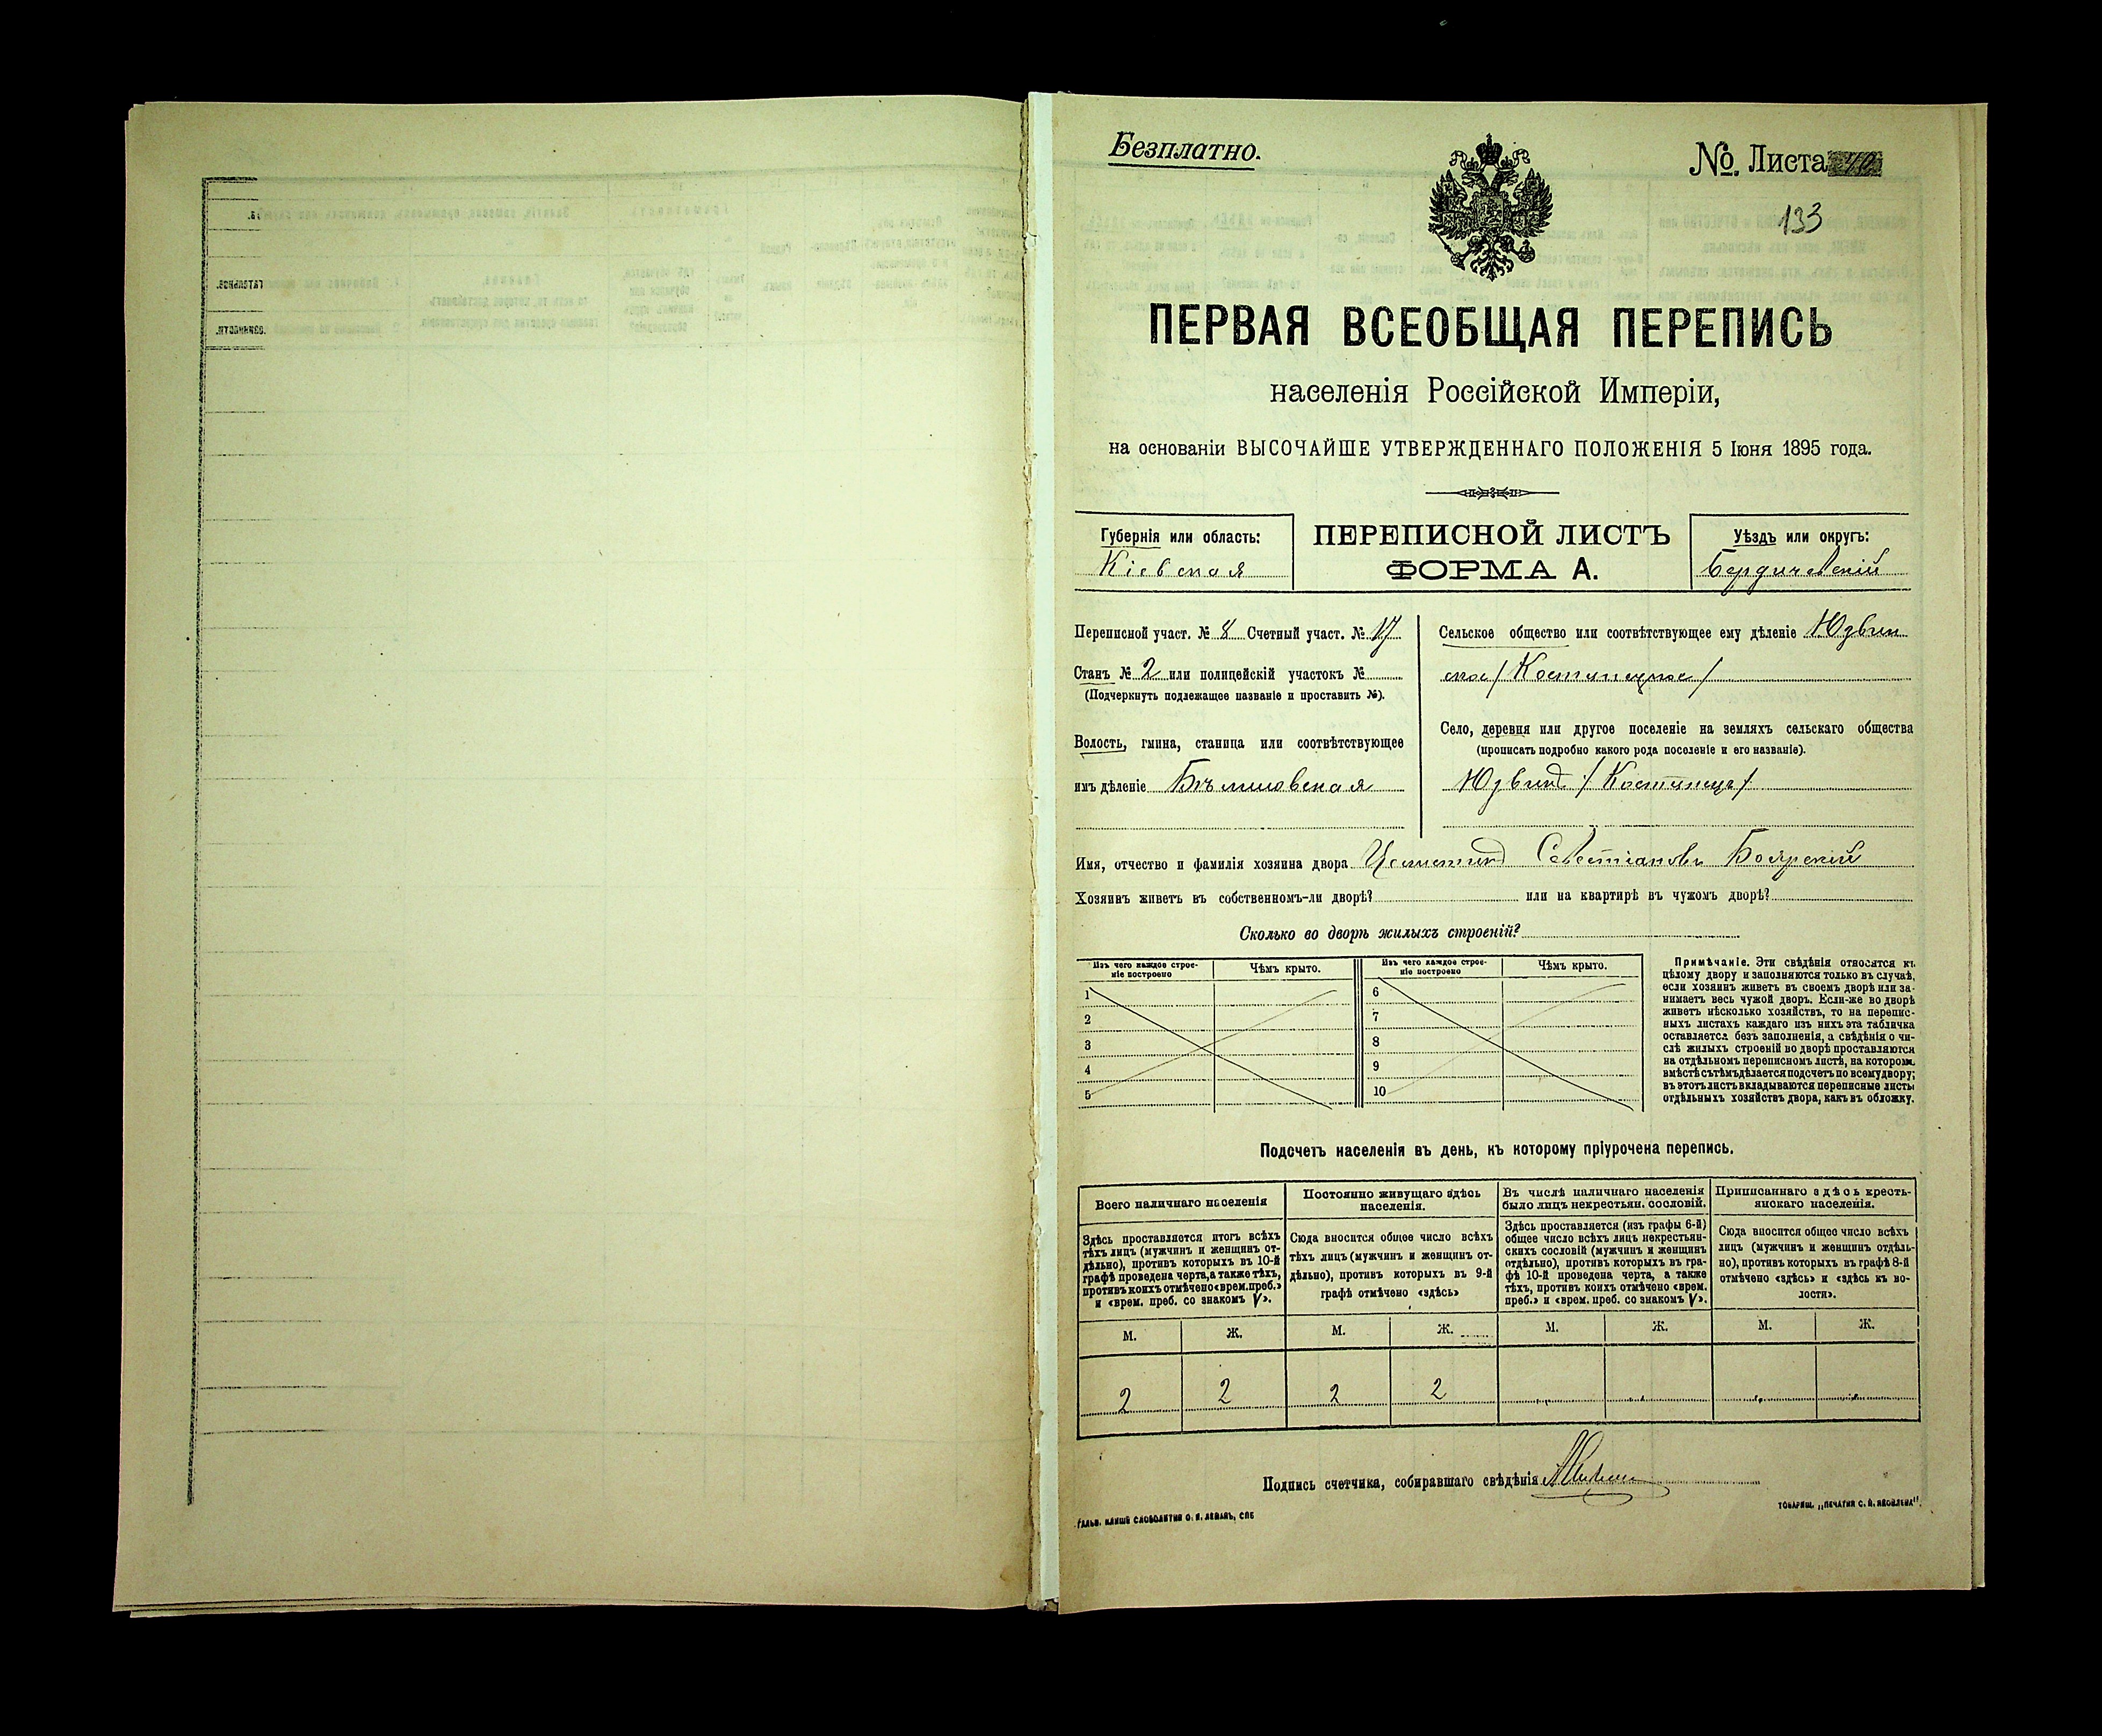 Безплатно.
№. Листа
133
ПЕРВАЯ ВСЕОБЩАЯ ПЕРЕПИСЬ
населенія Россійской Имперіи,
на основаніи ВЫСОЧАЙШЕ УТВЕРЖДЕННАГО ПОЛОЖЕНІЯ 5 Іюня 1895 года.
Губернія или область:
Кіевская
ПЕРЕПИСНОЙ ЛИСТЪ
ФОРМА А.
Уѣздъ или округъ:
Бердичевскій
Переписной участ. № 8 Счетный участ. № 17
Станъ № 2 или полицейскій участокъ №
(Подчеркнуть подлежащее названіе и проставить №).
Волость, гмина, станица или соотвѣтствующее
имъ дѣленіе Бѣлиловская
Сельское общество или соотвѣтствующее ему дѣленіе Юзвин
ское /Костинецкое/
Село, деревня или другое поселеніе на земляхъ сельскаго общества
(прописать подробно какого рода поселеніе и его названіе).
Юзвинъ /Костинецъ/
Имя, отчество и фамилія хозяина двора Севестіановъ Боярскій
Хозяинъ живетъ въ собственномъ-ли дворѣ? или на квартирѣ въ чужомъ дворѣ?
Сколько во дворѣ жилыхъ строеній?
Изъ чего каждое строе-
ніе построено
Чѣмъ крыто.
Изъ чего каждое строе-
ніе построено
Чѣмъ крыто.
1
2
3
4
5
6
7
8
9
10
Примѣчаніе. Эти свѣдѣнія относятся къ
цѣлому двору и заполняются только въ случаѣ,
если хозяинъ живетъ въ своемъ дворѣ или за-
нимаетъ весь чужой дворъ. Если-же во дворѣ
живетъ нѣсколько хозяйствъ, то на перепис-
ныхъ листахъ каждаго изъ нихъ эта табличка
оставляется безъ заполненія, а свѣдѣнія о чи-
слѣ жилыхъ строеній во дворѣ проставляются
на отдѣльномъ переписномъ листѣ, на которомъ
вмѣстѣ съ тѣмъ дѣлается подсчетъ по всему двору;
въ этотъ листъ вкладываются переписные листы
отдѣльныхъ хозяйствъ двора, какъ въ обложку.
Подсчетъ населенія въ день, къ которому пріурочена перепись.
Всего наличнаго населенія
Здѣсь проставляется итогъ всѣхъ
тѣхъ лицъ (мужчинъ и женщинъ от-
дѣльно), противъ которыхъ въ 10-й
графѣ проведена черта, а также тѣхъ,
противъ коихъ отмѣчено «врем. преб.»
и «врем. преб. со знакомъ V».
Постоянно живущаго здѣсь
населенія.
Сюда вносится общее число всѣхъ
тѣхъ лицъ (мужчинъ и женщинъ от-
дѣльно), противъ которыхъ въ 9-й
графѣ отмѣчено «здѣсь»
Въ числѣ наличнаго населенія
было лицъ некрестьян. сословій.
Здѣсь проставляется (изъ графы 6-й)
общее число всѣхъ лицъ некрестьян-
скихъ сословій (мужчинъ и женщинъ
отдѣльно), противъ которыхъ въ гра-
фѣ 10-й проведена черта, а также
тѣхъ, противъ коихъ отмѣчено «врем.
преб.» и «врем. преб. со знакомъ V».
Приписаннаго здѣсь кресть-
янскаго населенія.
Сюда вносится общее число всѣхъ
лицъ (мужчинъ и женщинъ отдѣль-
но), противъ которыхъ въ графѣ 8-й
отмѣчено «здѣсь» и «здѣсь въ во-
лости».
М. Ж. М. Ж. М. Ж. М. Ж.
2 2 2 2
Подпись счетчика, собиравшаго свѣдѣнія
ГАЛЬВ. КЛИШЕ СЛОВОЛИТНИ О. И. ЛЕМАНЪ, СПБ
ТОВАРИЩ. „ПЕЧАТНЯ С. П. ЯКОВЛЕВА".